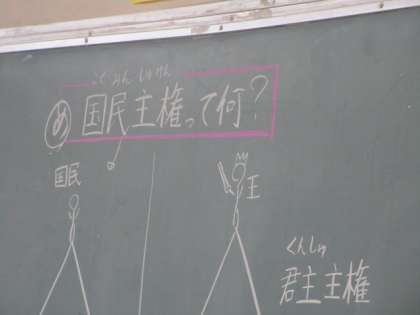 こくみん しゅけん
め 国民主権って何?
国民
王
くんしゅ
君主主権